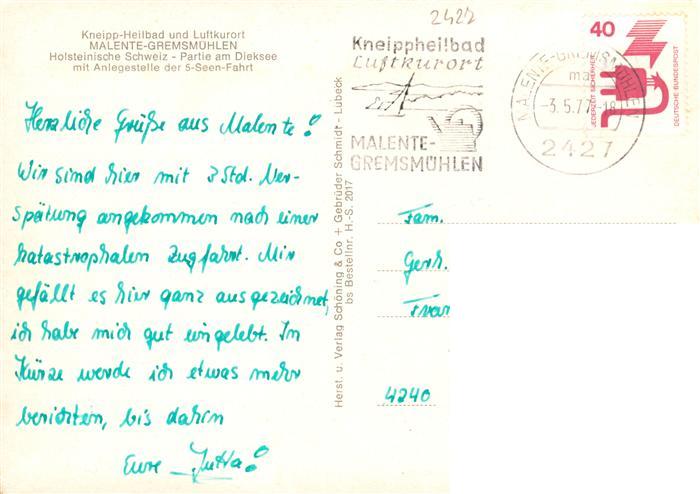 Kneipp-Heilbad und Luftkurort
MALENTE-GREMSMÜHLEN
Holsteinische Schweiz - Partie am Dieksee
mit Anlegestelle der 5-Seen-Fahrt
Herzliche Grüße aus Malente!
Wir sind hier mit 3 Std. Ver-
spätung angekommen nach einer
katastrophalen Zugfahrt. Mir
gefällt es hier ganz ausgezeichnet,
ich habe mich gut eingelebt. In
Kürze werde ich etwas mehr
berichten, bis dahin
Eure Jutta!
Herst. u. Verlag Schöning & Co + Gebrüder Schmidt - Lübeck
bs Bestellnr. H.-S. 2017
2427
Kneippheilbad
Luftkurort
MALENTE-
GREMSMÜHLEN
MALENTE-GREMSMÜHLEN
ma
-3.5.77-18
2427
40
JEDERZEIT SICHERHEIT
DEUTSCHE BUNDESPOST
Fam.
Gerh.
4240